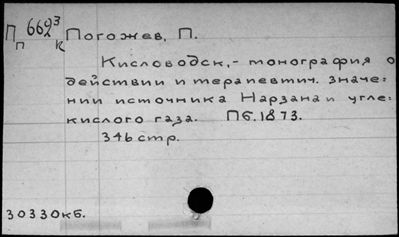 П 662³
п к Погожев, П.
Кисловодск,- монография о
действии и терапевтич. значе=
нии источника Нарзана и угле=
кислого газа. Пб. 1873.
346 стр.
30330кб.